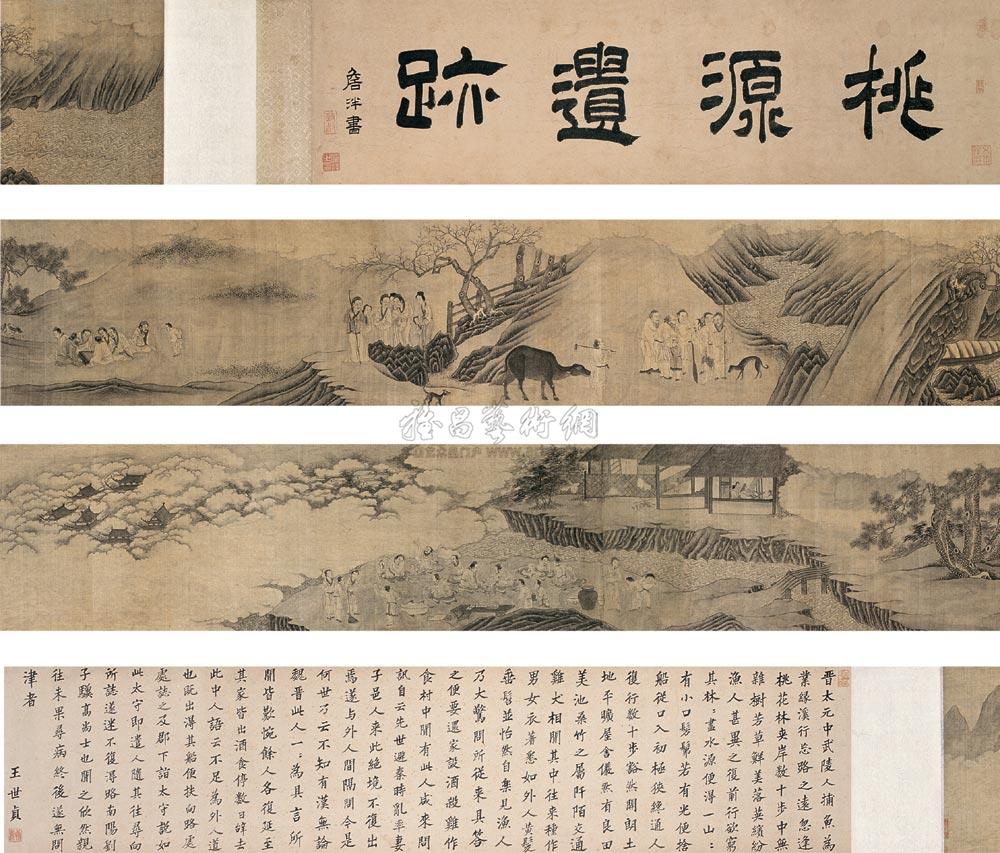 桃源遺跡
詹泮書
雅昌藝術網
晉太元中武陵人捕魚為
業緣溪行忘路之遠忽逢
桃花林夾岸數十步中無
雜樹芳草鮮美落英繽紛
漁人甚異之復前行欲窮
其林〻盡水源便得一山〻
有小口髣髴若有光便捨
船從口入初極狹纔通人
復行數十步豁然開朗土
地平曠屋舍儼然有良田
美池桑竹之屬阡陌交通
雞犬相聞其中往來種作
男女衣著悉如外人黃髮
垂髫並怡然自樂見漁人
乃大驚問所從來具答
之便要還家設酒殺雞作
食村中聞有此人咸來問
訊自云先世避秦時亂率妻
子邑人來此絕境不復出
焉遂與外人間隔問今是
何世乃云不知有漢無論
魏晉此人一為具言所
聞皆歎惋餘人各復延至
其家皆出酒食停數日辭去
此中人語云不足為外人道
也既出得其船便扶向路
處誌之及郡下詣太守說如
此太守即遣人隨其往尋向
所誌遂迷不復得路南陽劉
子驥高尚士也聞之欣然親
往未果尋病終後遂無問
津者
王世貞